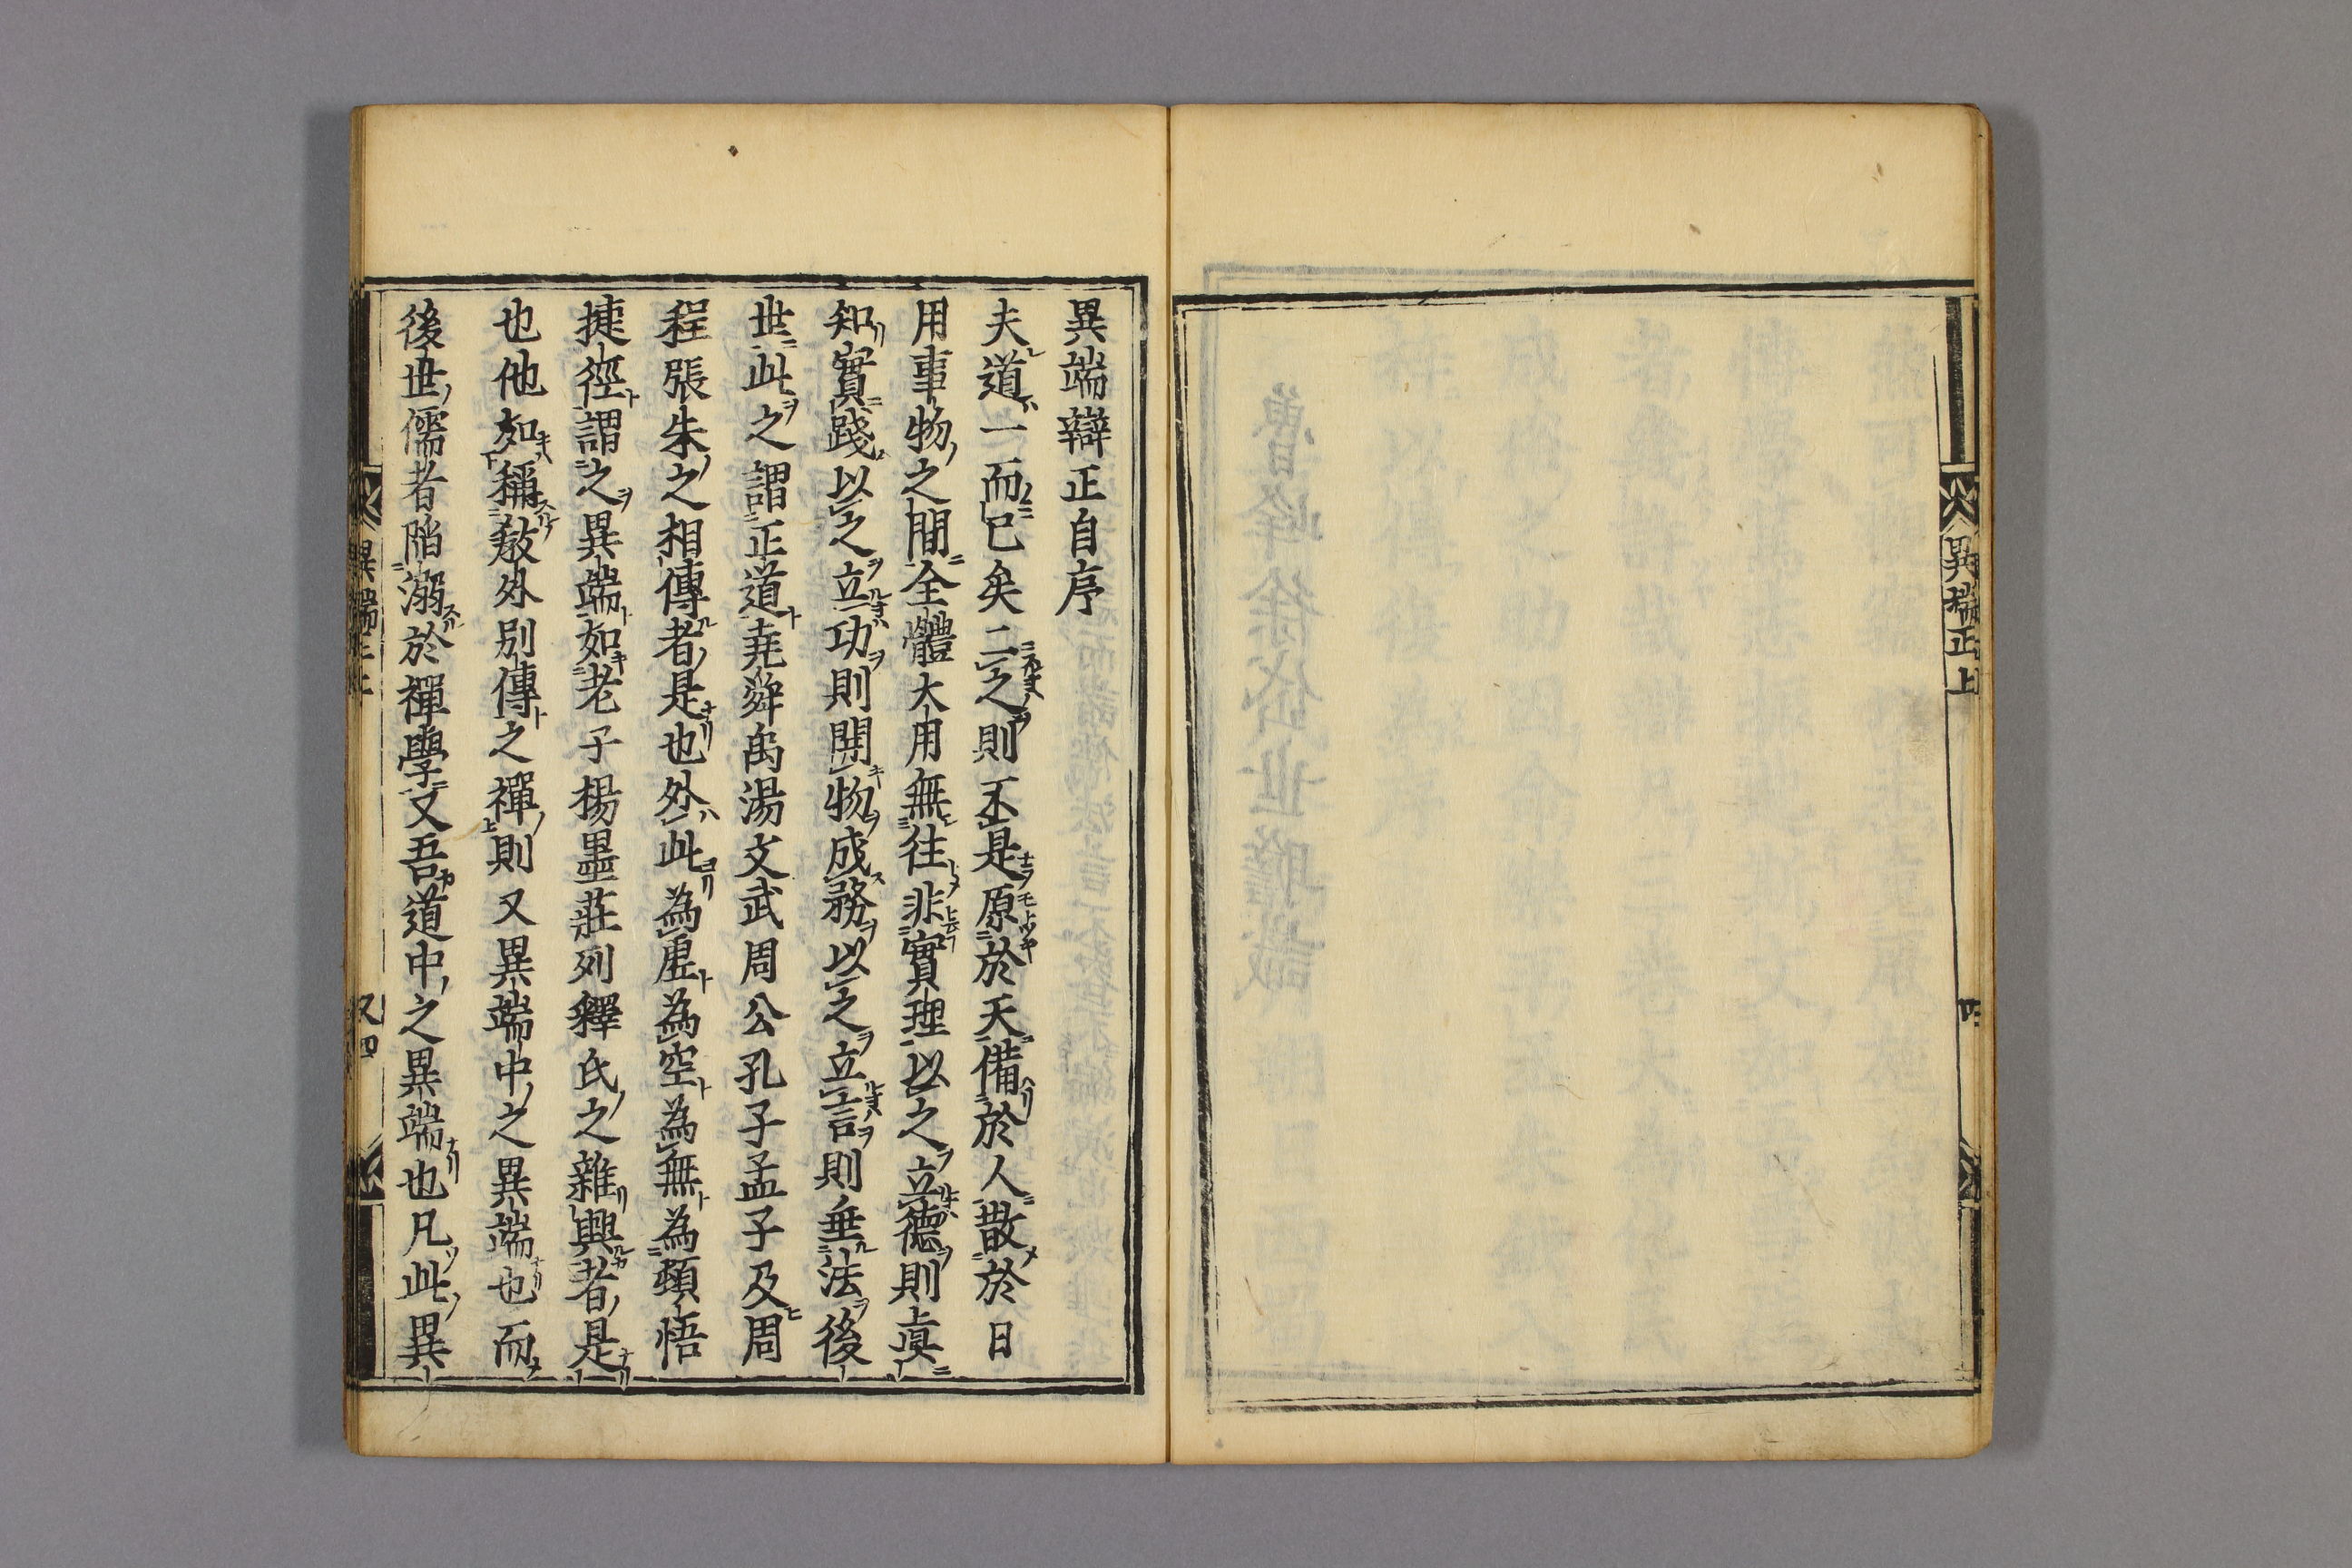 異端正上
四
異端辯正自序
夫道一而已矣二之則不是原於天備於人散於日
用事物之間全體大用無徃非實理以之立德則眞
知實踐以之立功則開物成務以之立言則垂法後
世此之謂正道堯舜禹湯文武周公孔子孟子及周
程張朱之相傳者是也外此為虛為空為無為頓悟
捷徑謂之異端如老子楊墨莊列釋氏之雜興者是
也他如稱敎外別傳之禪則又異端中之異端也而
後世儒者陷溺於禪學又吾道中之異端也凡此異
異端正上
又四